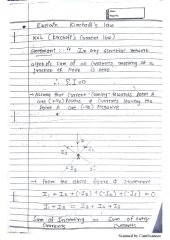 Explain Kirchoff's law
KCL (Kirchoff's Current law)
Statement :- " In any electrical network
algebraic sum of all currents meeting at a
junction of Node is zero.
∴ ΣI = 0
→ Assume that current coming towards point A
are (+ve) Positive & currents leaving the
point A are (-ve) Negative
A
→ From the above figure & statement
I₁ + I₂ + (-I₃) + (-I₄) + (-I₅) = 0
I₁ + I₂ = I₃ + I₄ + I₅
Sum of Incoming = Sum of outgoing
Currents Currents
Scanned by CamScanner